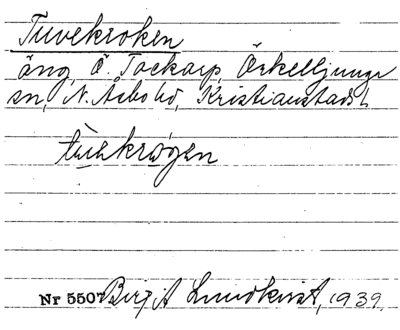 Tuvekroken
äng, Ö. Tockarp, Örkelljunga
sn, N. Åsbo hd, Kristianstads l.
krǫgen
Nr 5507 Birgit Lundkvist, 1939.